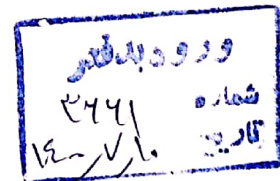 ورود به دفتر
شماره ۳۶۶۱
تاریخ ۱۴۰۰/۷/۱۰